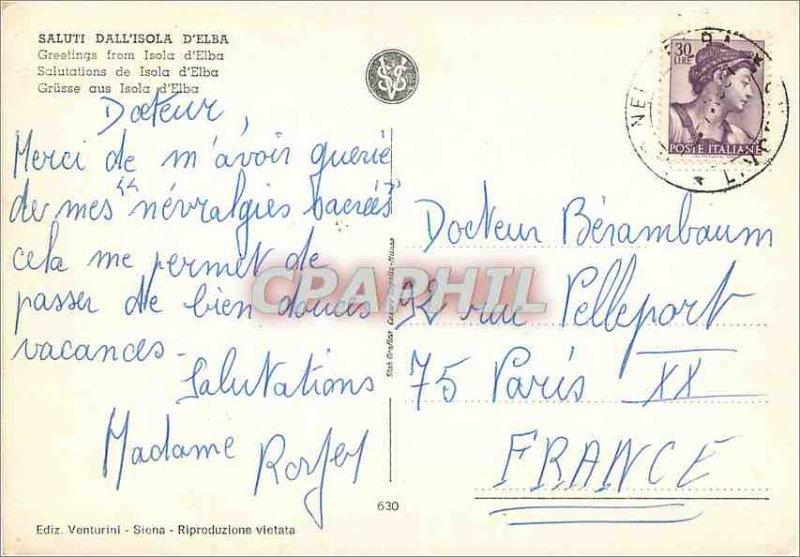 SALUTI DALL'ISOLA D'ELBA
Greetings from Isola d'Elba
Salutations de Isola d'Elba
Grüsse aus Isola d'Elba
Docteur,
Merci de m'avoir guerie
de mes "névralgies sacrées"
cela me permet de
passer de bien douces
vacances -
Salutations
Madame
30
LIRE
POSTE ITALIANE
Docteur Bérambaum
92 rue Pelleport
75 Paris XX
FRANCE
CPAPHIL
630
Ediz. Venturini - Siena - Riproduzione vietata